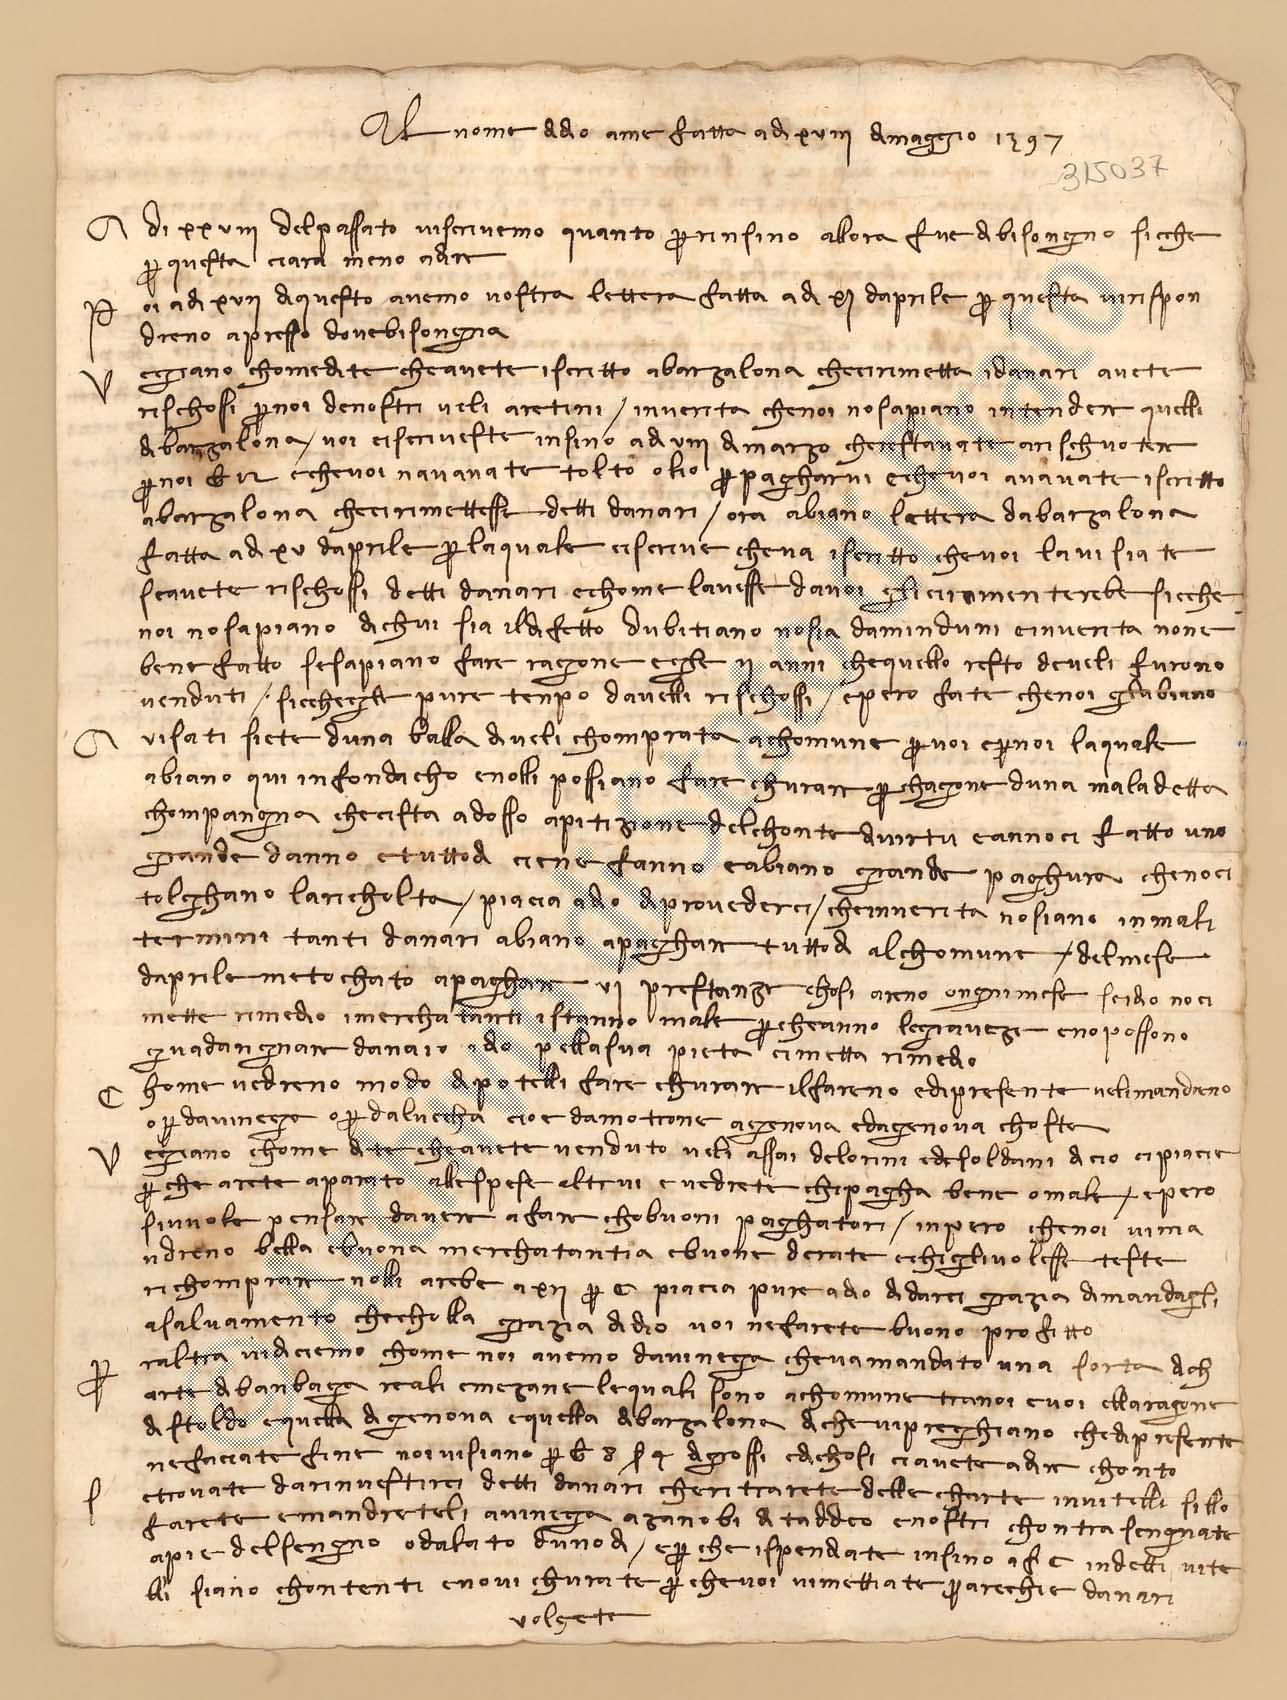 Al nome di dio ame fatta a di xviii di maggio 1397
315037
A di xxviii del passato viscrivemo quanto per insino allora fue di bisongno sicche
per questa ciara meno a dire
Poi a di xvii di questo avemo vostra lettera fatta a di xi daprile per questa virispon
dreno apresso dove bisongna
Vegiano chome dite che avete iscritto a barzalona checirimetta i danari avete
rischossi per noi de nostri veli aretini / in verita che noi no sapiano intendere quelli
di barzalona / voi ciscriveste insino a di viii di marzo che restavate a rischuotere
per noi £ 12 e che voi navavate tolto olio per pagharvi e che voi avavate iscritto
a barzalona checirimettesse detti danari / ora abiano lettera da barzalona
fatta a di xv daprile per la quale ci scrive che va iscritto che voi lavisiate
seavete rischossi detti danari e chome lavesse da voi gli cirimenterebe sicche
noi no sapiano di chui sia il difetto dubitiano nosia daminduni e in verita none
bene fatto se sapiano fare ragone egle ii anni che quello resto de veli furono
venduti / sicchegle pure tenpo davelli rischossi / e pero fate che noi gliabiano
Avisati siete duna balla di veli chomprata a chomune per voi e per noi la quale
abiano qui in fondacho e nolli possiano fare churare per chagone duna maladetta
chompangna checista adosso a pitizione del chonte di virtu e annoci fatto uno
grande danno e tuttodi ciene fanno e abiano grande paghura che noci
tolghano la richolta / piacia a dio di provederci / che in verita nosiano in mali
termini tanti danari abiano a paghare tuttodi al chomune / del mese
daprile metochato a paghare vi prestanze chosi areno ongni mese se idio noci
mette rimedio i merchatanti istanno male perche anno le gravezze e no possono
guadangnare danaio idio pella sua pieta ci metta rimedio
Chome vedreno modo di potelli fare churare il fareno e di presente veli mandreno
o per da vinega o per da luccha cioe da motrone a genova e da genova choste
Vegiano chome dite che avete venduto veli assai de lorini e de soldani di cio ci piacie
perche arete aparato alle spese altrui e vedrete chi pagha bene o male / e pero
si vuole pensare davere a fare cho buoni paghatori / inpero che noi vi ma
ndreno bella e buona merchatantia e buone derate e chi gli volesse teste
richomprare nolli arebe a xii per c piacia pure a dio di darci grazia di mandagli
a salvamento che cholla grazia di dio voi ne farete buono profitto
Per altra vi diciemo chome noi avemo da vinega che va mandato una sorta di ch
arte di banbaga reali e mezane le quali sono a chomune tra noi e voi e lla ragone
di stoldo e quella di genova e quella di barzalona di che vi preghiano che di presente
ne faciate fine noi visiano per £ 8 s 4 di grossi e di chosi ci avete a dire chonto
Se trovate da rinvestirci detti danari che ritrarete delle charte in vitelli sillo
farete e mandreteli a vinega a zanobi di taddeo e nostri chontrasengnate
a pie del sengno o dalato duno d / e perche ispendate insino a f c in detti vite
lli siano chontenti e novi churate perche voi vi mettiate parechie danari
volgete